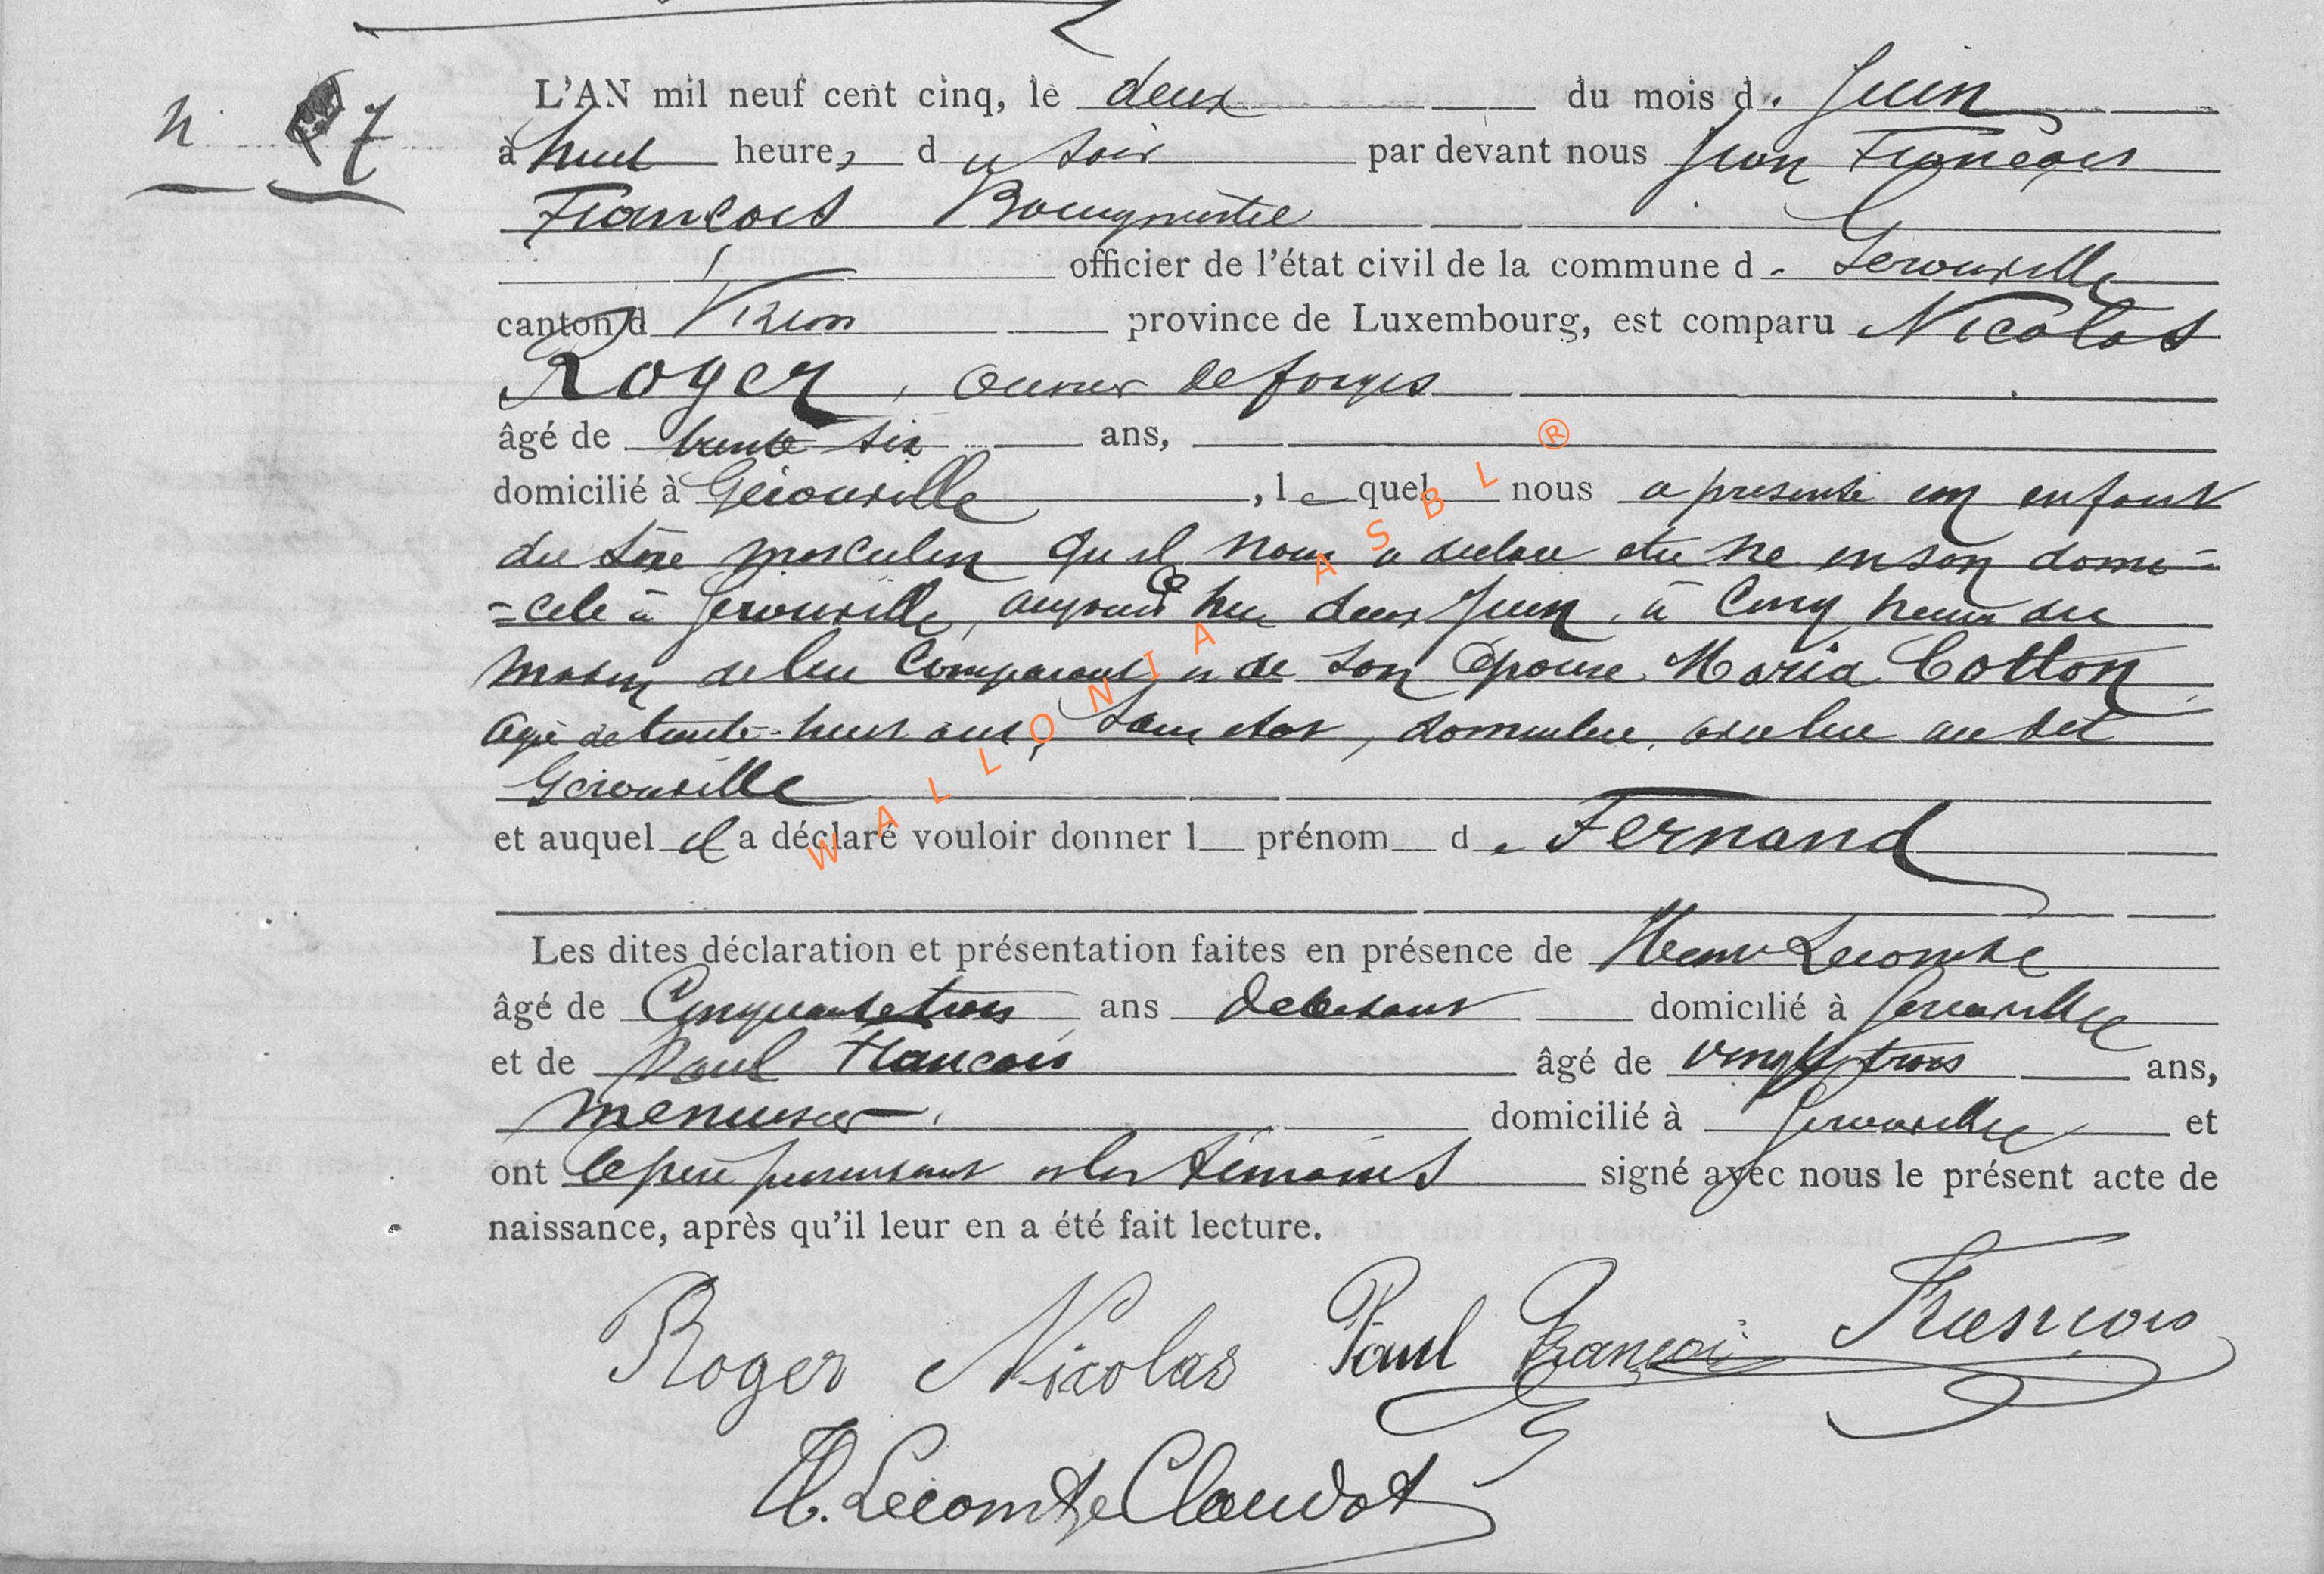 n. 7
L'AN mil neuf cent cinq, le deux du mois de Juin
à huit heures du soir par devant nous Jean François
François Bourgmestre
officier de l'état civil de la commune de Gérouville
canton d Virton province de Luxembourg, est comparu Nicolas
Roger, ouvrier de forges
âgé de trente six ans,
domicilié à Gérouville, lequel nous a présenté un enfant
du sexe masculin qu'il nous a déclaré être né en son domi-
=cile à Gérouville, aujourd'hui deux Juin, à cinq heures du
matin de lui comparant et de son épouse Maria Cotton
âgée de trente-huit ans, sans état, domiciliée, avec lui au dit
Gérouville
et auquel il a déclaré vouloir donner l prénom de Fernand
Les dites déclaration et présentation faites en présence de Henri Lecomte
âgé de Cinquante trois ans débitant domicilié à Gérouville
et de Paul François âgé de vingt trois ans,
menuisier, domicilié à Gérouville et
ont le père présentant et les témoins signé avec nous le présent acte de
naissance, après qu'il leur en a été fait lecture.
Roger Nicolas Paul François François
H. Lecomte Claudot
WALLONIA ASBL ®